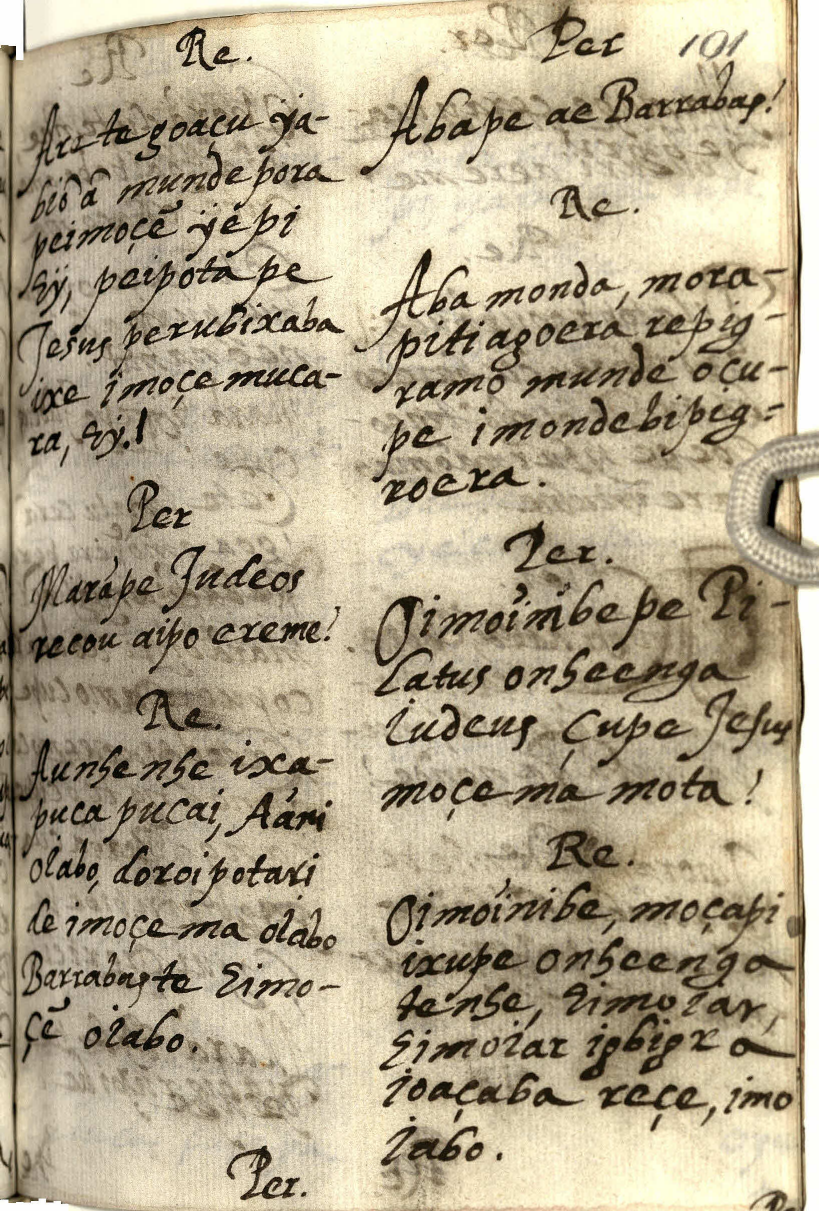 Re.
Arete goaçu ÿa-
bio'ã munde pora
peimoçẽ ÿepi
Eÿ, peipota pe
Jesus perubixaba
ixe imoçemuca-
ra, Eÿ.!
Per
Marãpe Judeos
recou aipo ereme!
Re.
Aunhenhe ixa-
puca pucai, Aáni
oIabo, doroipotari
de imoçe ma oIabo
Barrabas te Eimo-
çẽ oIabo.
Per.
Per 101
Abape ae Barrabas!
Re.
Aba monda, mora-
pitiagoera repig-
ramo munde oçu-
pe imondebipig-
roera.
Per.
Oimoinibe pe Pi-
Latus onheenga
Iudeus çupe Jesus
moçe ma mota!
Re.
Oimoinibe, moçapi
ixupe onheenga
tenhe, Eimoiar,
Eimoiar
Ioaçaba reçe, imo
Iabo.